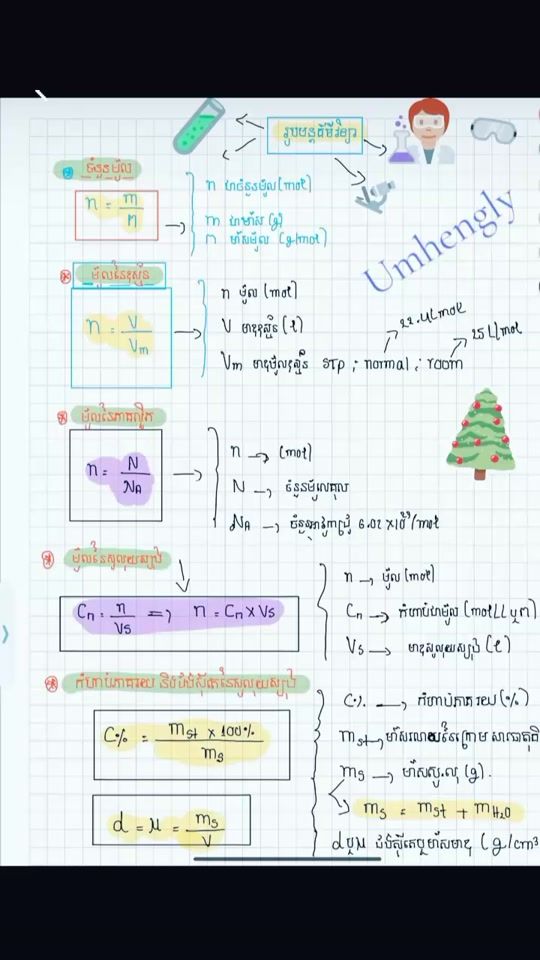 រូបមន្តគីមីវិទ្យា
Umhengly
ចំនួនម៉ូល
n = m/M
n ជាចំនួនម៉ូល (mol)
m ជាម៉ាស (g)
ម៉ាសម៉ូល (g/mol)
ម៉ូលនៃឧស្ម័ន
n = V/Vm
n ម៉ូល (mol)
V មាឌឧស្ម័ន (l)
Vm មាឌម៉ូលឧស្ម័ន STP ; normal ; room
22.4L/mol
25L/mol
ម៉ូលនៃភាគល្អិត
n = N/NA
n → (mol)
N → ចំនួនម៉ូលេគុល
NA → 6.02 × 10²³/mol
ម៉ូលនៃសូលុយស្យុង
Cn = n/Vs ⇒ n = Cn × Vs
n → ម៉ូល (mol)
Cn → កំហាប់ជាម៉ូល
Vs → មាឌសូលុយស្យុង (l)
កំហាប់ភាគរយ និងដង់ស៊ីតេនៃសូលុយស្យុង
C% = mst × 100% / ms
C% → កំហាប់ភាគរយ (%)
mst → ម៉ាស
ms → ម៉ាស (g).
ms = mst + mH2O
d = μ = ms/V
d ឬ μ ដង់ស៊ីតេឬម៉ាសមាឌ (g/cm³